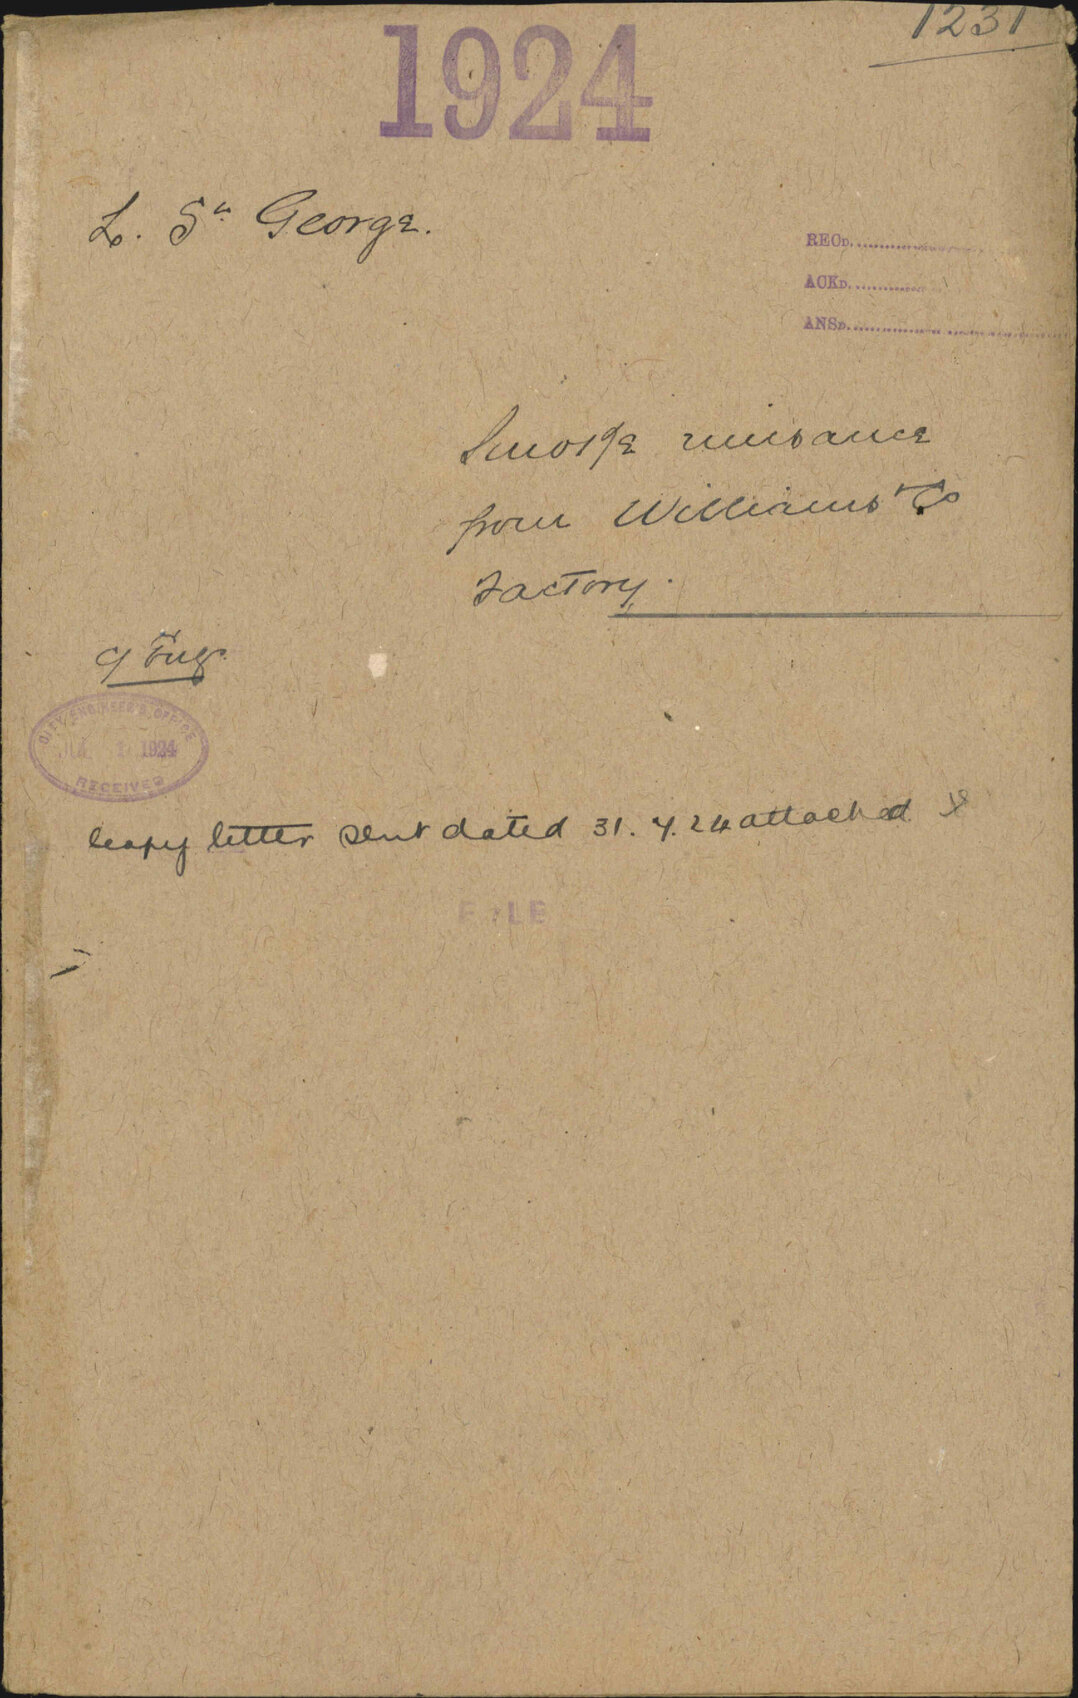 1231
1924
L. St George.
RECD.
ACKD.
ANSD.
Smoke nuisance
from Williams' Co
Factory.
C/ Eng.
CITY ENGINEER'S OFFICE
JUL 1 1924
RECEIVED
Copy letter sent dated 31. 7. 24 attached
FILE